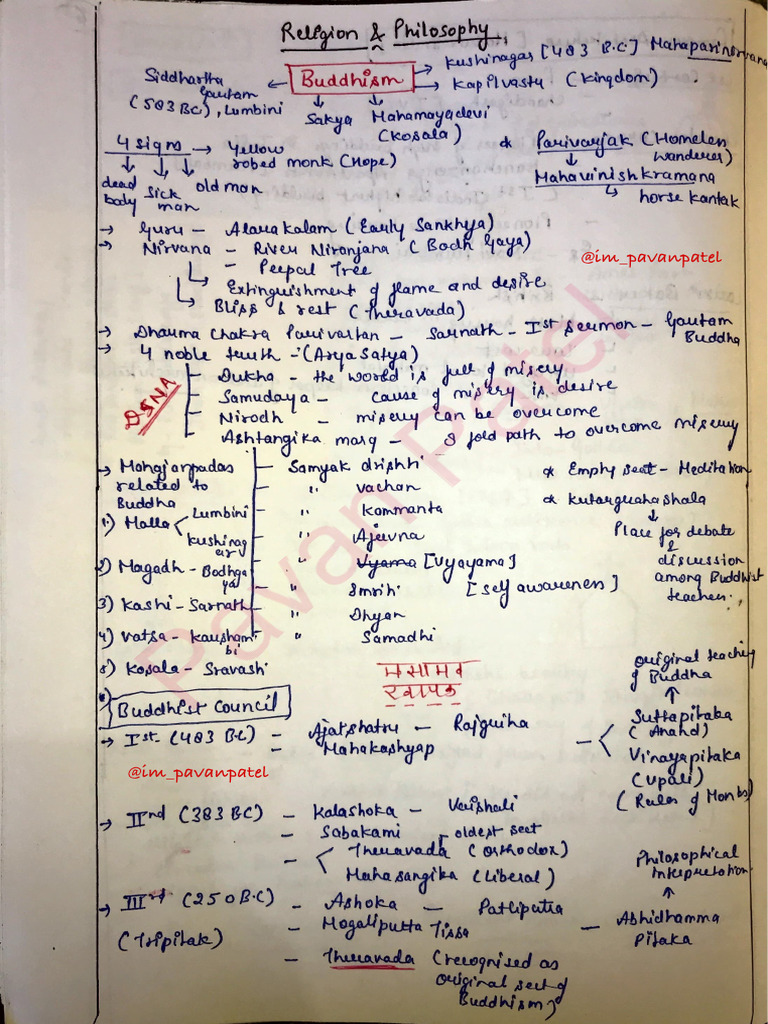 Religion & Philosophy
Buddhism
Kushinagar [483 B.C] Mahaparinirvana
Kapilvastu (Kingdom)
Siddhartha
Gautam
(583 BC), Lumbini
Sakya
Mahamayadevi
(Kosala)
4 signs → Yellow
robed monk (Hope)
dead
body
Sick
man
old man
* Parivarjak (Homeless
wanderer)
Mahavinishkramana
↳ horse Kantak
→ Guru - Alarakalam (Early Sankhya)
→ Nirvana - River Niranjana (Bodh Gaya)
@im_pavanpatel
- Peepal Tree
Extinguishment of flame and desire
Bliss & rest (Theravada)
→ Dharma Chakra Parivartan - Sarnath - Ist sermon - Gautam
Buddha
→ 4 noble truth - (Arya Satya)
DSNA
Dukha - the world is full of misery
Samudaya - cause of misery is desire
Nirodh - misery can be overcome
Ashtangika marg - 8 fold path to overcome misery
→ Mahajanpadas
related to
Buddha
1) Malla
Lumbini
Kushinag
ar
2) Magadh - Bodhga
ya
3) Kashi - Sarnath
4) Vatsa - Kausham
bi
5) Kosala - Sravasti
Samyak drishti
" vachan
" Kommanta
" Ajeevna
" Vyama [Vyayama]
" Smriti [self awareness]
" Dhyan
" Samadhi
* Empty seat - Meditation
* Kutargrahashala
↓
Place for debate
&
discussion
among Buddhist
teachers.
म सा म व
र वा पा क
Pavan Patel
Buddhist Council
→ Ist (483 BC) - Ajatshatru - Rajgriha
- Mahakashyap
original teaching
of Buddha
↑
Suttapitaka
(Anand)
Vinayapitaka
(Upali)
(Rules of Monks)
@im_pavanpatel
→ IInd (383 BC) - Kalashoka - Vaishali
- Sabakami - oldest sect
Theravada (orthodox)
Mahasangika (Liberal)
→ IIIrd (250 B.C) - Ashoka - Patliputra
(Tripitak)
- Mogaliputta Tissa - Abhidhamma
Pitaka
↑
Philosophical
Interpretation
- Theravada (recognised as
original sect of
Buddhism)